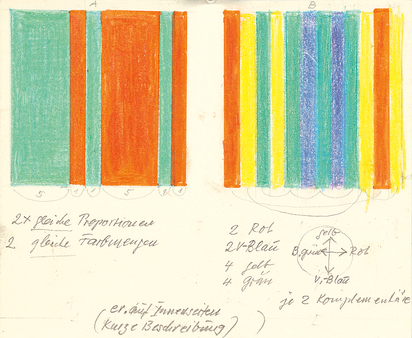 A
B
5 1 1 5 1 1
2x gleiche Proportionen
2 gleiche Farbmengen
2 Rot
2 V-Blau
4 gelb
4 grün
gelb
B.grün Rot
V.-Blau
je 2 Komplementäre
auf Innenseiten
(Kurze Beschreibung)